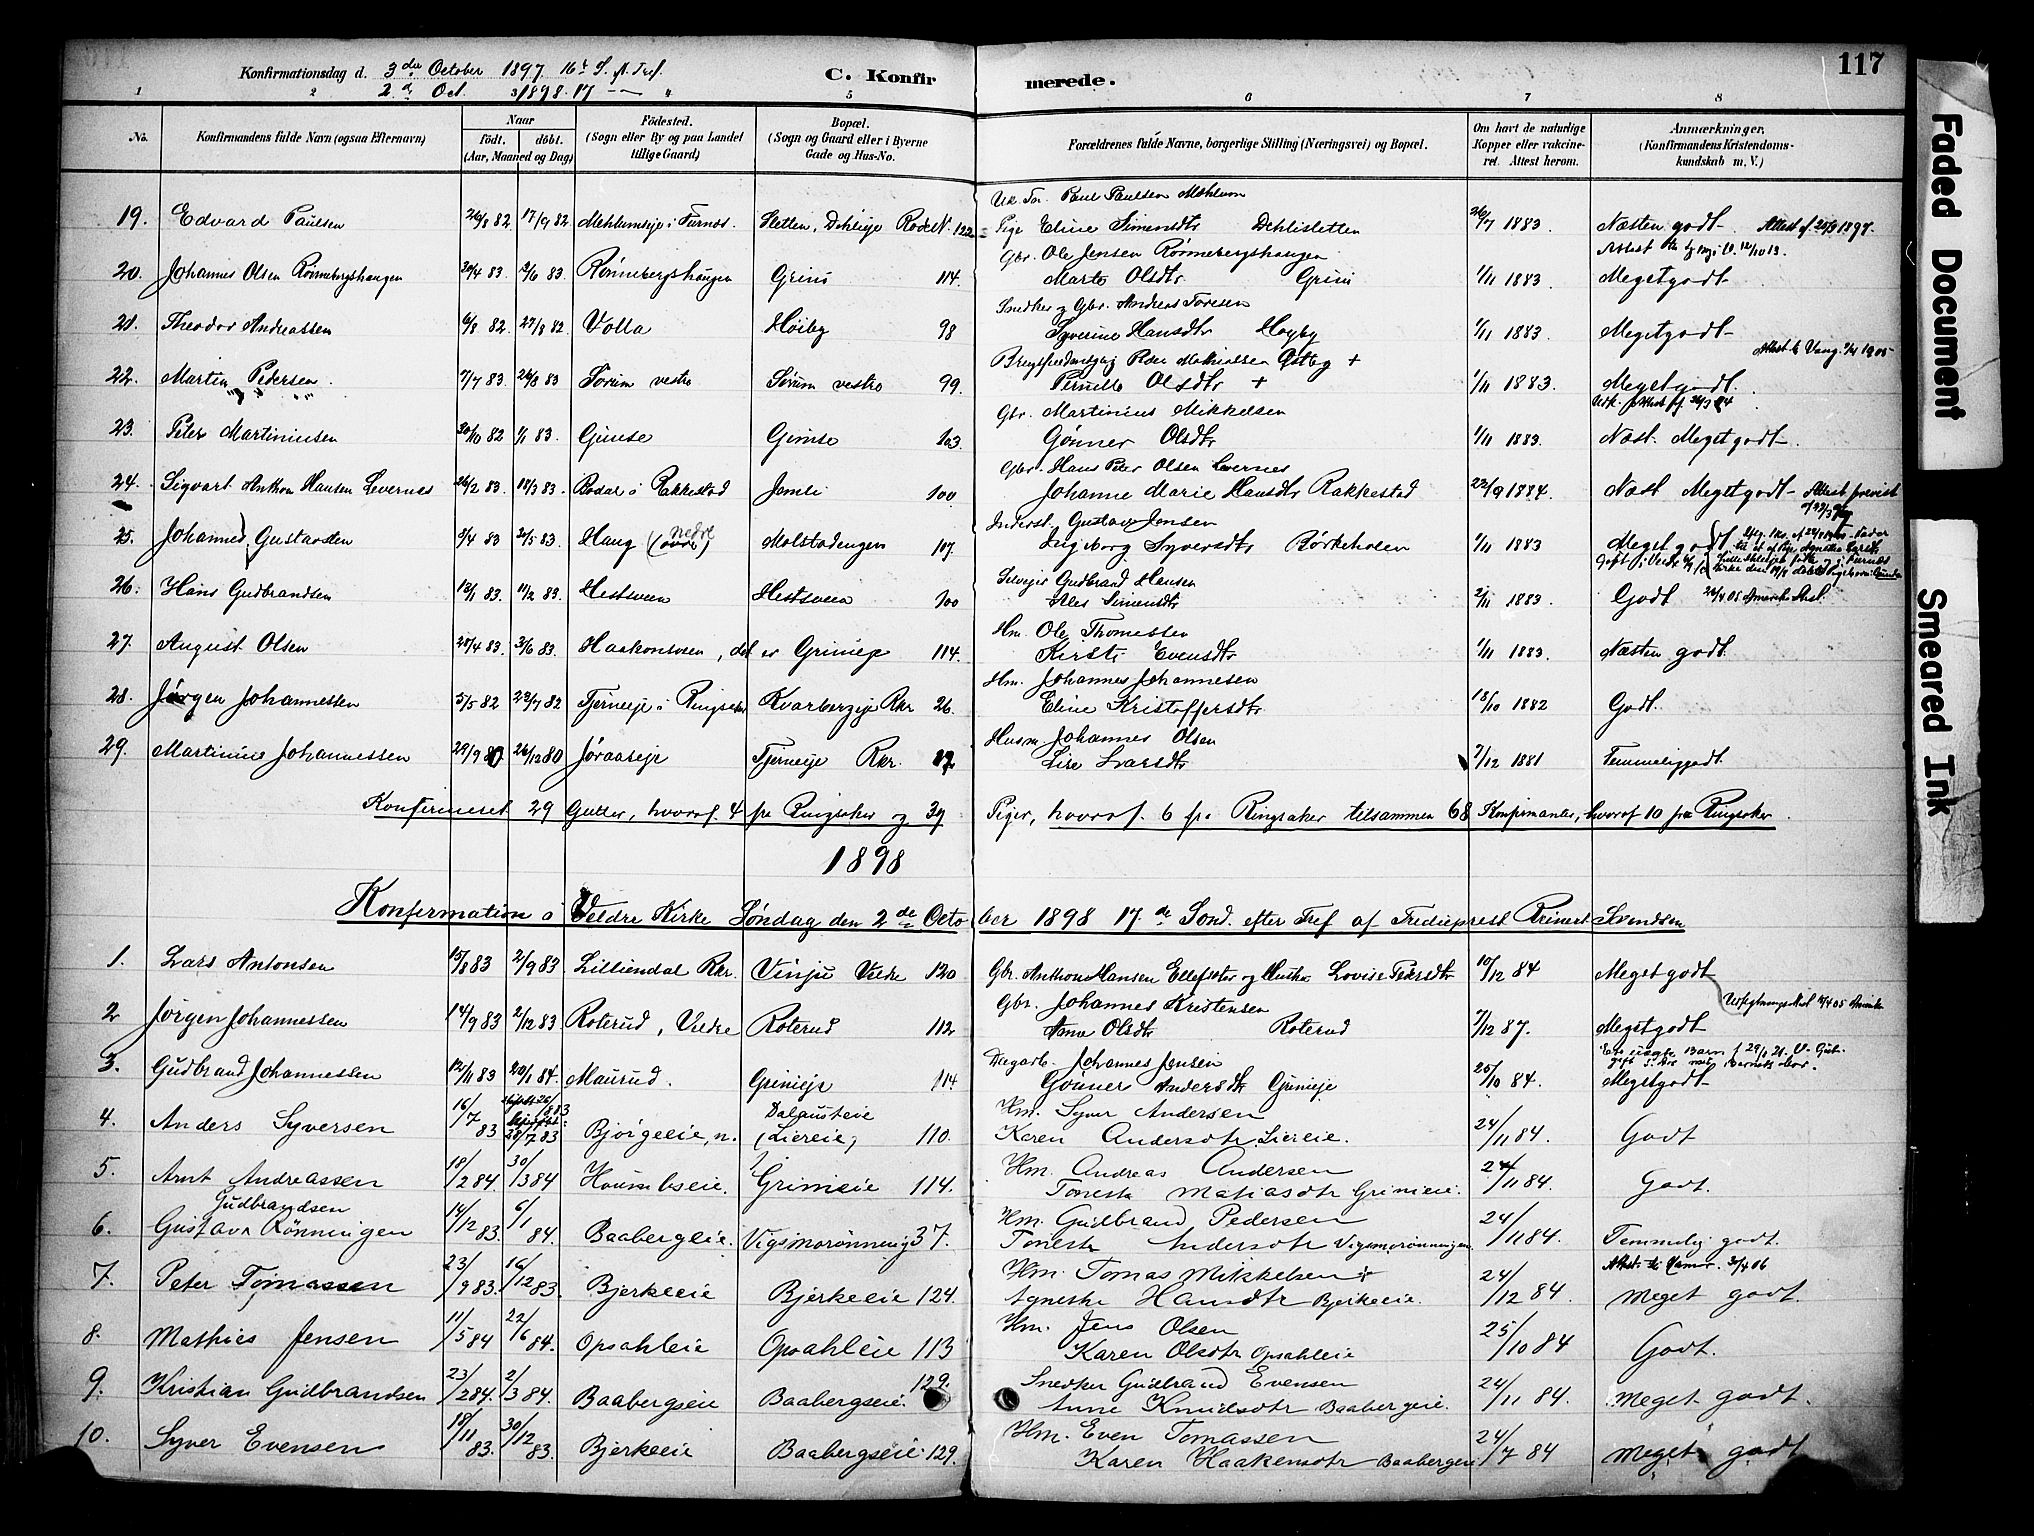 117
Konfirmationsdag d. 3die October 1897 16 S. e. Tref.
2den Oct. 1898. 17 — "
C. Konfirmerede.
1 2 3 4 5 6 7 8
No. Konfirmandens fulde Navn (ogsaa Efternavn) Naar Födt. döbt. (Aar, Maaned og Dag) Födested. (Sogn eller By og paa Landet tillige Gaard) Bopæl. (Sogn og Gaard eller i Byerne Gade og Hus-No. Forældrenes fulde Navne, borgerlige Stilling (Næringsvei) og Bopæl. Om havt de naturlige Kopper eller vakcineret. Attest herom. Anmærkninger. (Konfirmandens Kristendomskundskab m. V.)
Paul Paulsen Mehlum
19. Edvard Paulsen 26/8 82 17/9 82 Mehlumseje i Furnes. Sletten, Dehlieje 122 Pige Eline Simensdtr Dehlisletten 26/7 1883 Næsten godt.
Gbr. Ole Jensen Rønnebergshaugen
20. Johannes Olsen Rønnebergshaugen 30/4 83. 83. Rønnebergshaugen Grini 114. Marte Olsdtr Grini 1/11 1883 Megetgodt
Snedker og Gbr. Andreas Toresen
21. Theodor Andreassen 6/8 82. 27/8 82 Volla Høiby 98 Syverine Hansdtr Høyby 1/11 1883. Megetgodt
22. Martin Pedersen. 7/7 83. 26/8 83 Sørum vestre Sørum vestre 99. Pernille Olsdtr + 1/11 1883. Megetgodt.
Gbr. Martinius Mikkelsen
23. Peter Martiniusen 30/10 82 1/1 83. Gimse Gimse 103 Gønner Olsdtr 1/11 1883. Næst. Megetgodt.
Gbr. Hans Peter Olsen Levernes
24. Sigvart Anthon Hansen Levernes 26/2 83. 18/3 83. Bodal i Rakkestad Jemli 100 Johanne Marie Hansdtr Rakkestad 22/9 1884. Næst Megetgodt
Inderst. Gustav Jensen
25. Johannes Gustavsen 9/4 83 83. Haug (øvre) nedre Molstadengen 107. Ingeborg Syversdtr 1/11 1883 Meget godt
Selvejer Gudbrand Hansen
26. Hans Gudbrandsen 13/1 83. 11/2 83. Hestsveen Hestsveen 100 Ales Simensdtr 2/11 1883 Godt
Hm. Ole Thomessen
27. August Olsen 28/4 83. 3/6 83. Haakonsveen, det er Grinieje 114. Kirsti Evensdtr 1/11 1883. Næsten godt.
Hm. Johannes Johannesen
28. Jørgen Johannessen 5/5 82 23/7 82 Tjerneje i Ringsaker Kvarbergeje Rkr 26. Eline Kristoffersdtr 13/10 1882 Godt.
Husm. Johannes Olsen
29. Martinius Johannessen 29/9 80 26/12 80 Jøraaseje Tjerneje Rkr. Lise Larsdtr 7/12 1881 Temmeliggodt.
Konfirmeret 29 Gutter, hvoraf 4 fra Ringsaker og 39 Piger, hvoraf. 6 fra Ringsaker tilsammen 68 Konfirmanter, hvoraf 10 fra Ringsaker.
1898
Konfirmation i Veldre Kirke Søndag den 2den October 1898 17de Sønd. efter Tref af Trediepræst Reinert Svendsen
1. Lars Antonsen 15/8 83 2/9 83 Lilliendal Rkr. Vinju Veldre 120 Gbr. Anthon Hansen og Hustru Lovise Pedersdtr 10/12 84 Megetgodt
Gbr. Johannes Kristensen
2 Jørgen Johannessen 14/9 83 2/12 83 Roterud, Veldre Roterud 112 Anne Olsdtr Roterud 7/12 87. Megetgodt
Dagarb. Johannes Jensen
3. Gudbrand Johannessen 12/11 83 20/1 84. Maurud. Grinieje 114 Gønner Andersdtr Grinieje 25/10 84. Megetgodt
Hm. Syver Andersen
4. Anders Syversen 16/7 83 28/7 83 Bjørgeeie, n. (Liereie) 110. Karen Andersdtr Liereie. 24/11 84. Godt
Hm. Andreas Andersen
5. Arnt Andreassen 18/2 84. 30/3 84 Houmbseie. Grinieie 114. Toneste Matiasdtr Grinieie. 24/11 84. Godt.
Gudbrandsen Hm. Gudbrand Pedersen
6. Gustava Rønningen 14/12 83. 6/1 84. Baabergseie. Vigsmorønning 37. Toneste Andersdtr Vigsmorønningen 24/11 84. Temmelig godt.
Hm. Tomas Mikkelsen
7. Peter Tomassen 23/9 83. 16/12 83. Bjerkeeie Bjerkeeie 124. Agneste Hansdtr Bjerkeeie. 24/12 84. Meget godt.
Hm. Jens Olsen
8. Mathies Jensen 11/5 84 22/6 84. Opsahleie Opsahleie 113 Karen Olsdtr Opsahleie 25/10 84 Godt.
Snedker Gudbrand Evensen
9. Kristian Gudbrandsen 23/2 84. 2/3 84. Baabergseie Baabergseie. 129. Anne Knudsdtr Baabergeie. 24/11 84. Meget godt.
Hm. Even Tomassen
10. Syver Evensen 18/11 83. 30/12 83. Bjerkeeie Baabergseie 129. Karen Haakensdtr Baabergeie 24/7 84 Meget godt
Faded Document
Smeared Ink